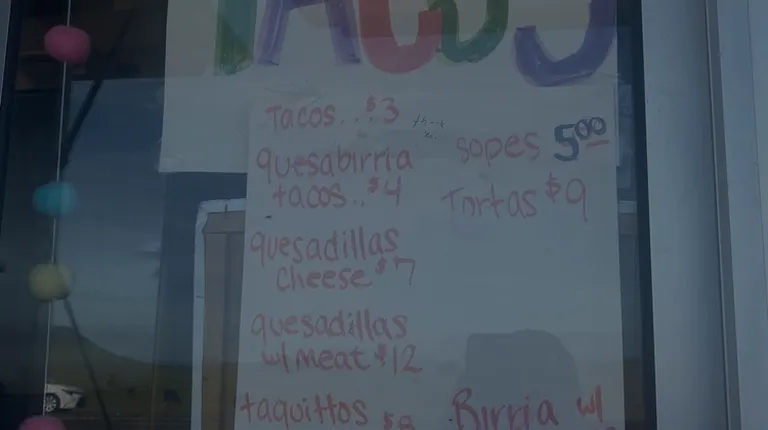 TACOS
Tacos..$3
quesabirria
tacos..$4
quesadillas
cheese $7
quesadillas
w/ meat $12
taquittos $8
sopes 5.00
Tortas $9
Birria w/